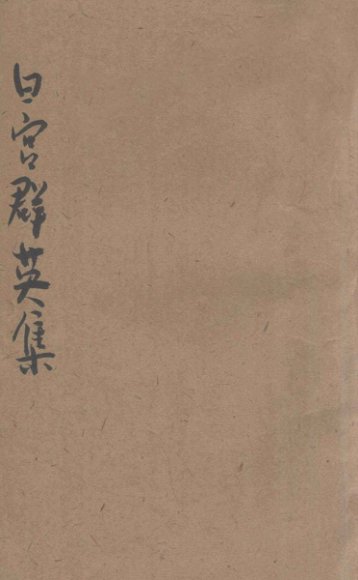 白宫群英集